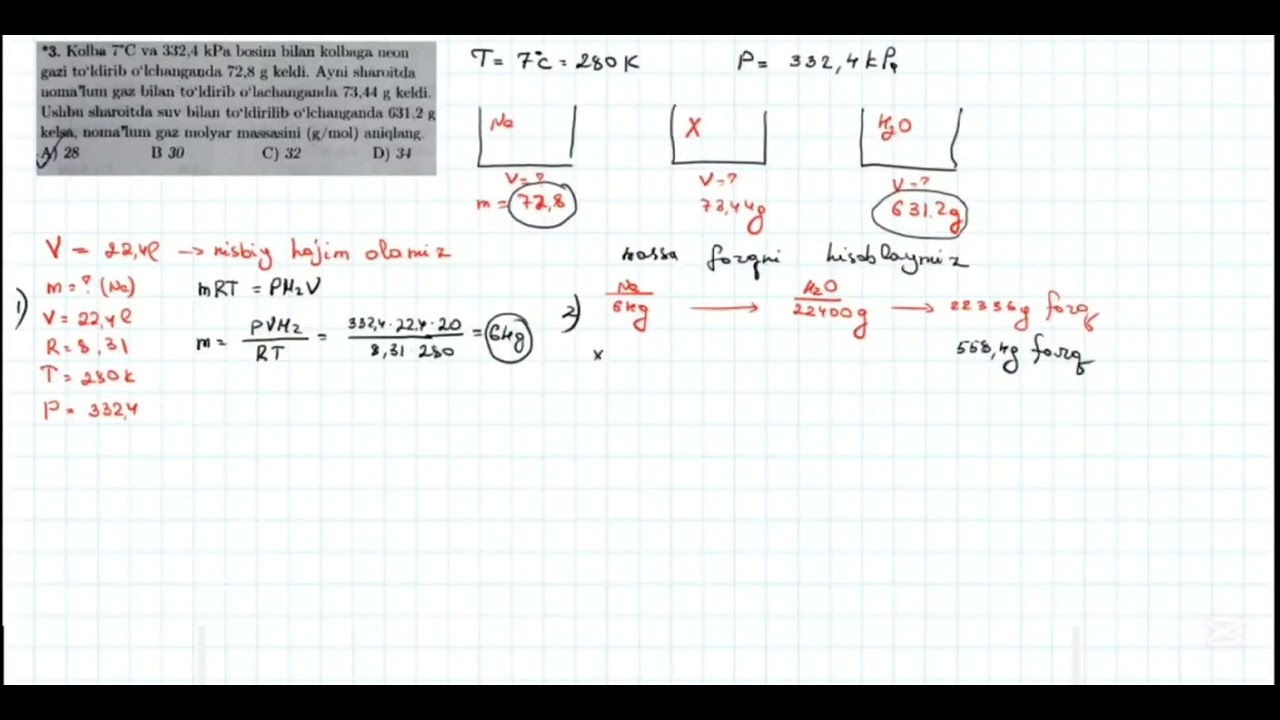 *3. Kolba 7°C va 332,4 kPa bosim bilan kolbaga neon
gazi to'ldirib o'lchanganda 72,8 g keldi. Ayni sharoitda
noma'lum gaz bilan to'ldirib o'lachanganda 73,44 g keldi.
Ushbu sharoitda suv bilan to'ldirilib o'lchanganda 631.2 g
kelsa, noma'lum gaz molyar massasini (g/mol) aniqlang.
A) 28 B 30 C) 32 D) 34
T = 7°C = 280 K P = 332,4 kPa
Ne X H2O
V = ? V = ? V = ?
m = 72,8 73,44g 631.2g
V = 22,4l → nisbiy hajim olamiz
massa farqni hisoblaymiz
1) m = ? (Ne)
V = 22,4l
R = 8,31
T = 280k
P = 332,4
mRT = PMzV
m = PVMz / RT = 332,4 · 22,4 · 20 / 8,31 · 280 = 64g
2) Ne / 64g → H2O / 22400g → 22336g farq
x 558,4g farq